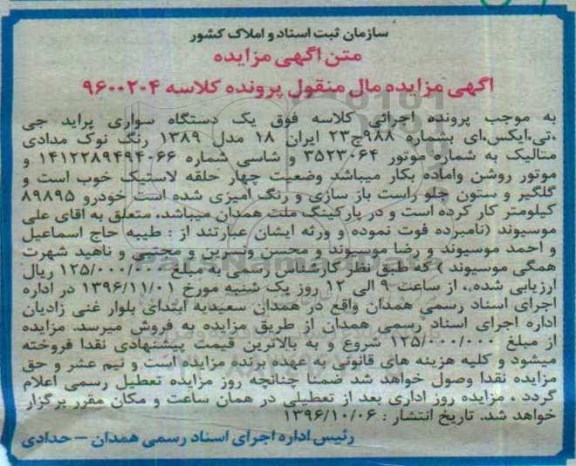 سازمان ثبت اسناد و املاک کشور
متن آگهی مزایده
آگهی مزایده مال منقول پرونده کلاسه ۹۶۰۰۲۰۴
به موجب پرونده اجرائی کلاسه فوق یک دستگاه سواری پراید جی
.تی.ایکس.ای بشماره ۹۸۸ج۲۳ ایران ۱۸ مدل ۱۳۸۹ رنگ نوک مدادی
متالیک به شماره موتور ۳۵۲۳۰۶۴ و شاسی شماره ۱۴۱۲۲۸۹۴۹۴۰۶۶ و
موتور روشن واماده بکار میباشد وضعیت چهار حلقه لاستیک خوب است و
گلگیر و ستون جلو راست باز سازی و رنگ آمیزی شده است خودرو ۸۹۸۹۵
کیلومتر کار کرده است و در پارکینگ ملت همدان میباشد، متعلق به آقای علی
موسیوند (نامبرده فوت نموده و ورثه ایشان عبارتند از : طیبه حاج اسماعیل
و احمد موسیوند و رضا موسیوند و محسن و نسرین و مجتبی و ناهید شهرت
همگی موسیوند ) که طبق نظر کارشناس رسمی به مبلغ ۱۲۵/۰۰۰/۰۰۰ ریال
ارزیابی شده،، از ساعت ۹ الی ۱۲ روز یک شنبه مورخ ۱۳۹۶/۱۱/۰۱ در اداره
اجرای اسناد رسمی همدان واقع در همدان سعیدیه ابتدای بلوار غنی زادیان
اداره اجرای اسناد رسمی همدان از طریق مزایده به فروش میرسد. مزایده
از مبلغ ۱۲۵/۰۰۰/۰۰۰ شروع و به بالاترین قیمت پیشنهادی نقدا فروخته
میشود و کلیه هزینه های قانونی به عهده برنده مزایده است و نیم عشر و حق
مزایده نقدا وصول خواهد شد ضمنا چنانچه روز مزایده تعطیل رسمی اعلام
گردد ، مزایده روز اداری بعد از تعطیلی در همان ساعت و مکان مقرر برگزار
خواهد شد. تاریخ انتشار : ۱۳۹۶/۱۰/۰۶
رئیس اداره اجرای اسناد رسمی همدان – حدادی